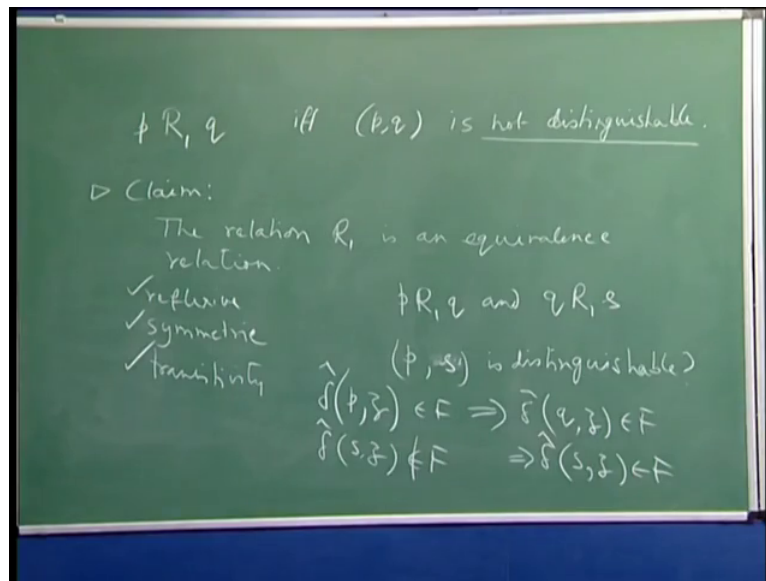 p R₁ q iff (p,q) is not distinguishable.
▷ Claim:
The relation R₁ is an equivalence
relation.
✓reflexive
✓symmetric
✓transitivity
p R₁ q and q R₁ s
(p, s) is distinguishable?
δ̂(p,z) ∈ F ⇒ δ̂(q,z) ∈ F
δ̂(s,z) ∉ F ⇒ δ̂(s,z) ∈ F